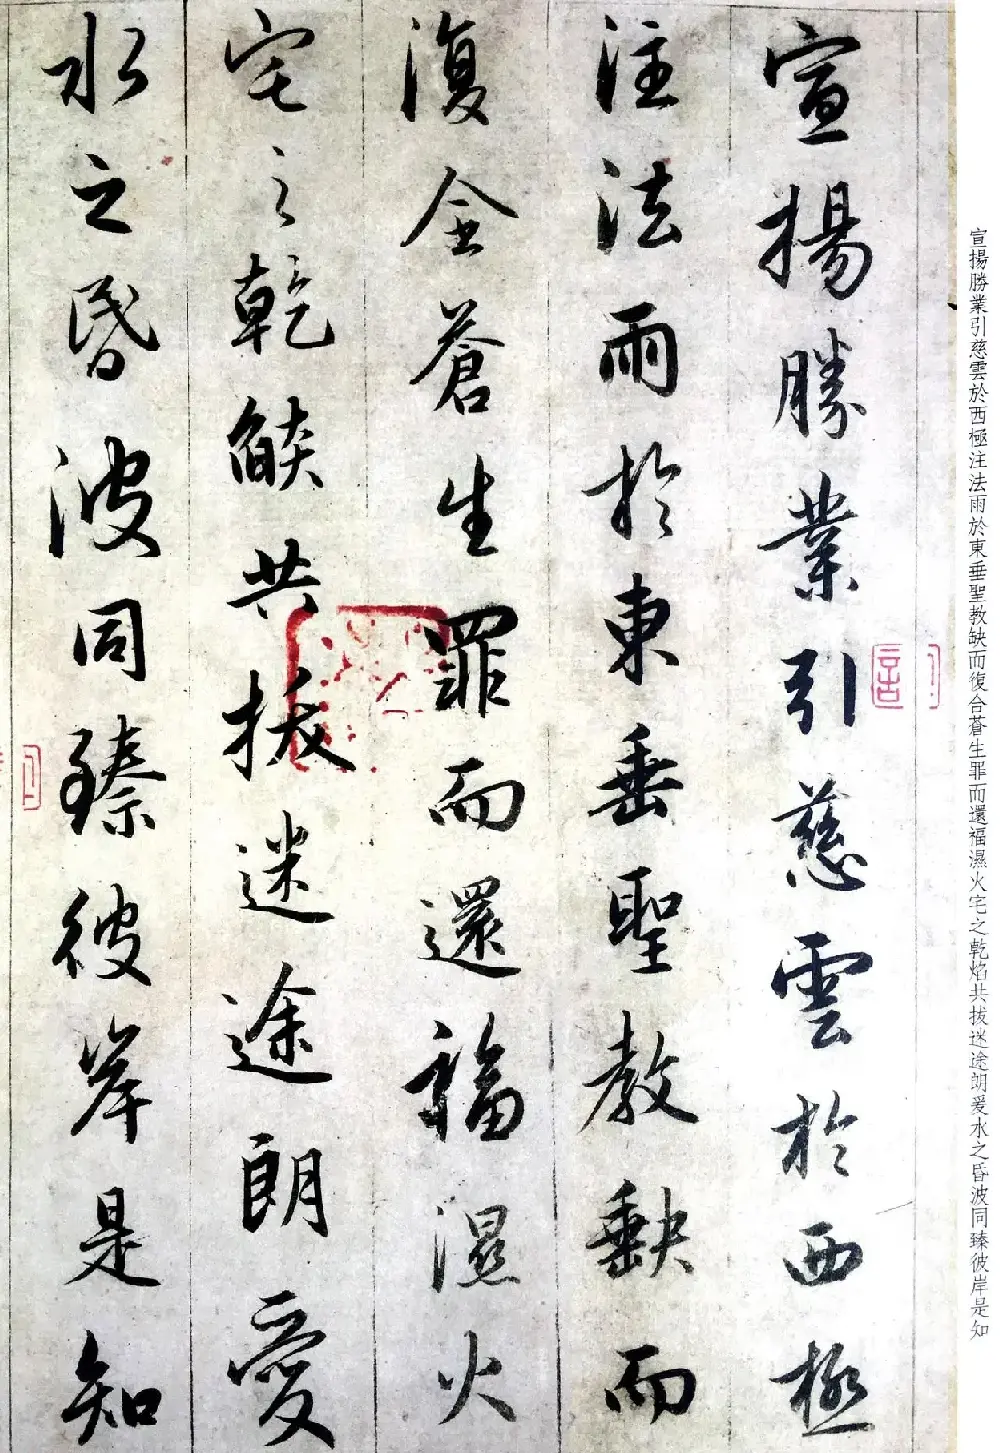 宣揚勝業引慈雲於西極
注法雨於東垂聖教缺而
復全蒼生罪而還福濕火
宅之乾燄共拔迷途朗愛
水之昏波同臻彼岸是知
宣揚勝業引慈雲於西極注法雨於東垂聖教缺而復合蒼生罪而還福濕火宅之乾焰共拔迷途朗爱水之昏波同臻彼岸是知